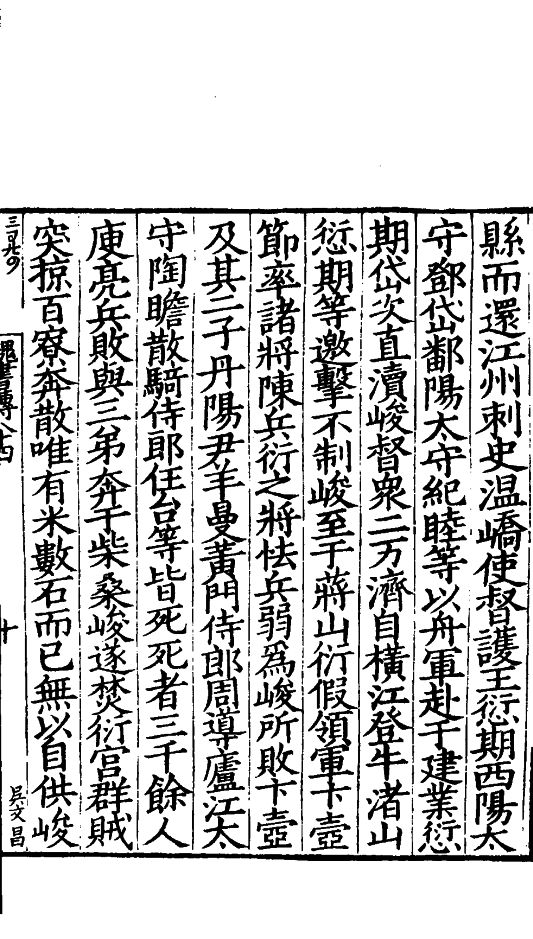 縣而還江州刺史温嶠使督護王愆期西陽太
守鄧岱鄱陽太守紀睦等以舟軍赴于建業愆
期岱次直瀆峻督衆二万濟自橫江登牛渚山
愆期等邀擊不制峻至于蔣山衍假領軍卞壼
節率諸將陳兵衍之將怯兵弱爲峻所敗卞壼
及其二子丹陽尹羊曼黃門侍郎周導廬江太
守陶瞻散騎侍郎任台等皆死死者三千餘人
庾亮兵敗與三弟奔于柴桑峻遂焚衍宮群賊
突掠百寮奔散唯有米數石而已無以自供峻
魏書傳八十四
十
吳文昌